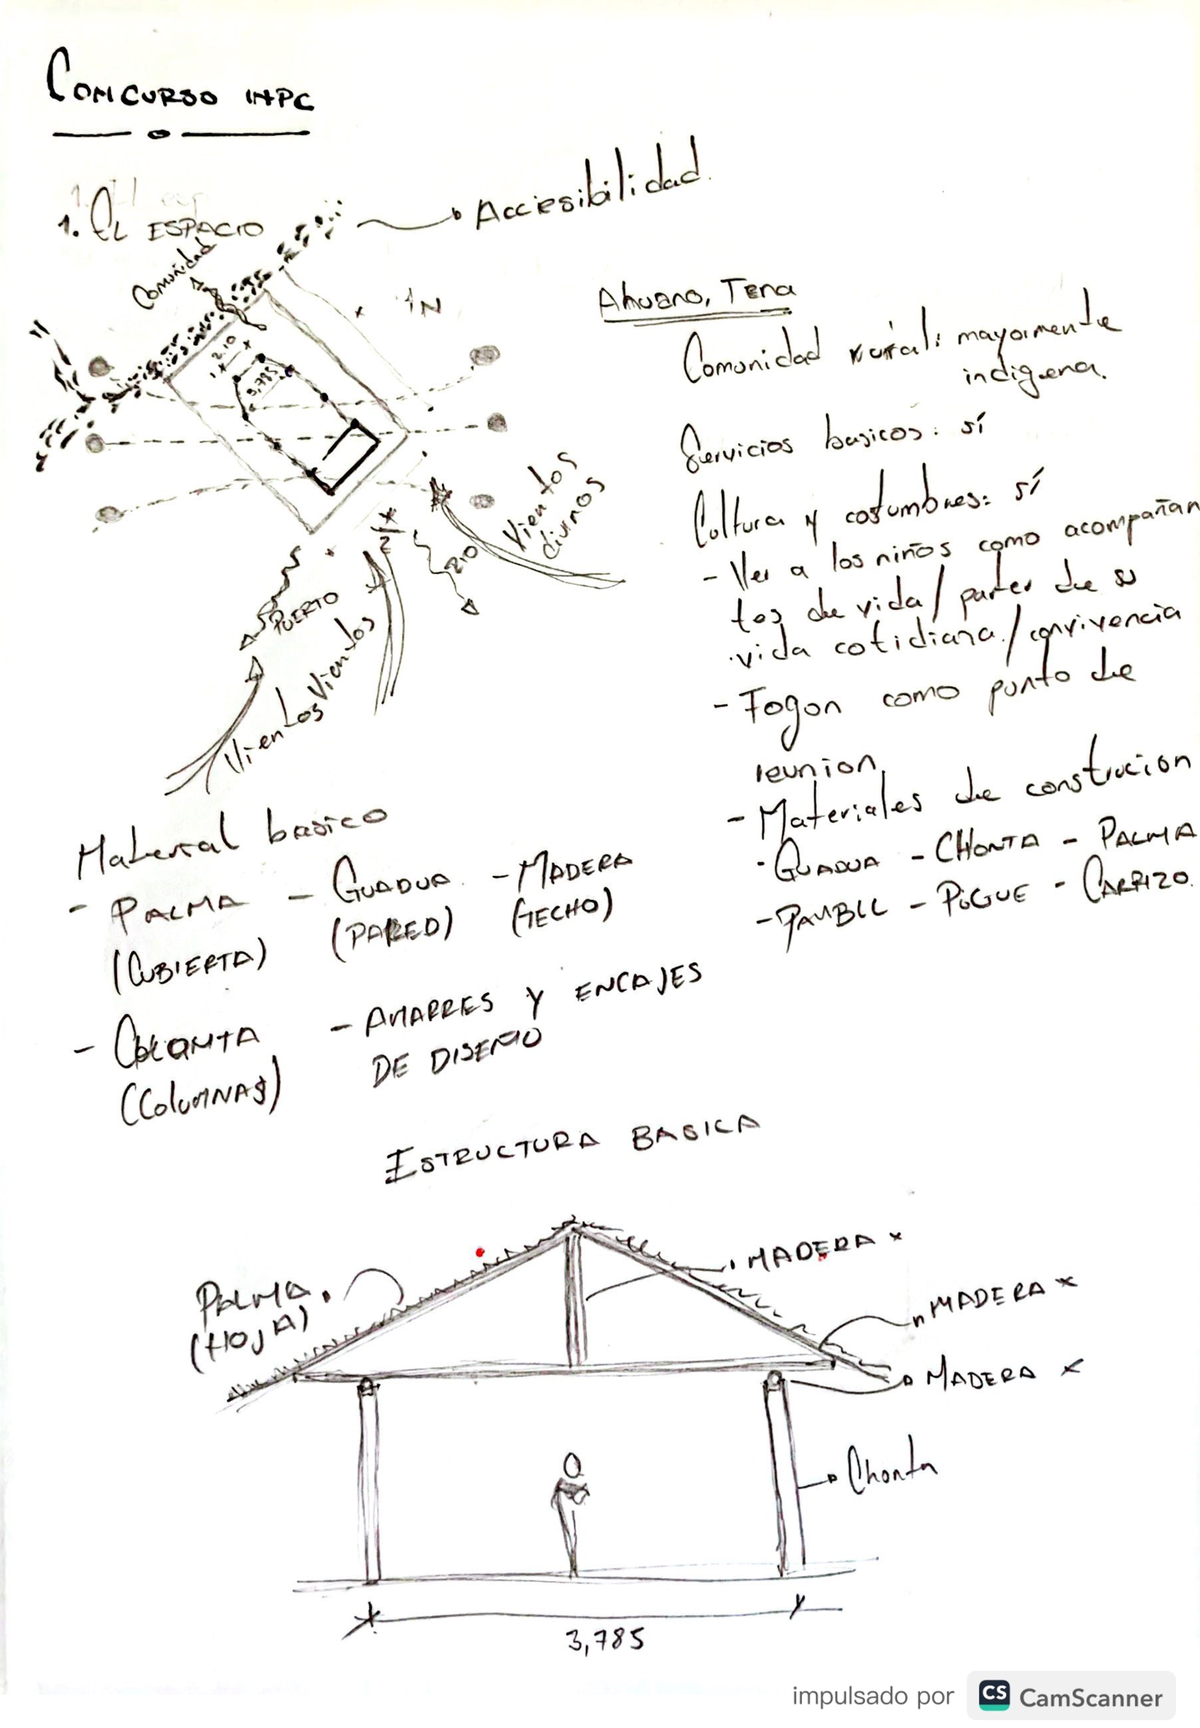 CONCURSO INPC
1. EL ESPACIO
Accesibilidad.
Comunidad
N
2.10
3,785
Ahuano, Tena
Comunidad rural: mayormente
indigena.
Servicios basicos: sí
Cultura y costumbres: sí
- Ver a los niños como acompañan
tes de vida / partes de su
vida cotidiana / convivencia
- Fogon como punto de
reunion
- Materiales de construcion
- GUADUA - CHONTA - PALMA
- PAMBIL - PIGUE - CARRIZO.
Vientos
diurnos
PUERTO
Vientos
Vientos
Material basico
- PALMA - GUADUA - MADERA
(CUBIERTA) (PARED) (TECHO)
- CHONTA - AMARRES Y ENCAJES
(COLUMNAS) DE DISEÑO
ESTRUCTURA BASICA
PALMA
(HOJA)
MADERA x
MADERA x
MADERA x
Chonta
3,785
impulsado por CS CamScanner